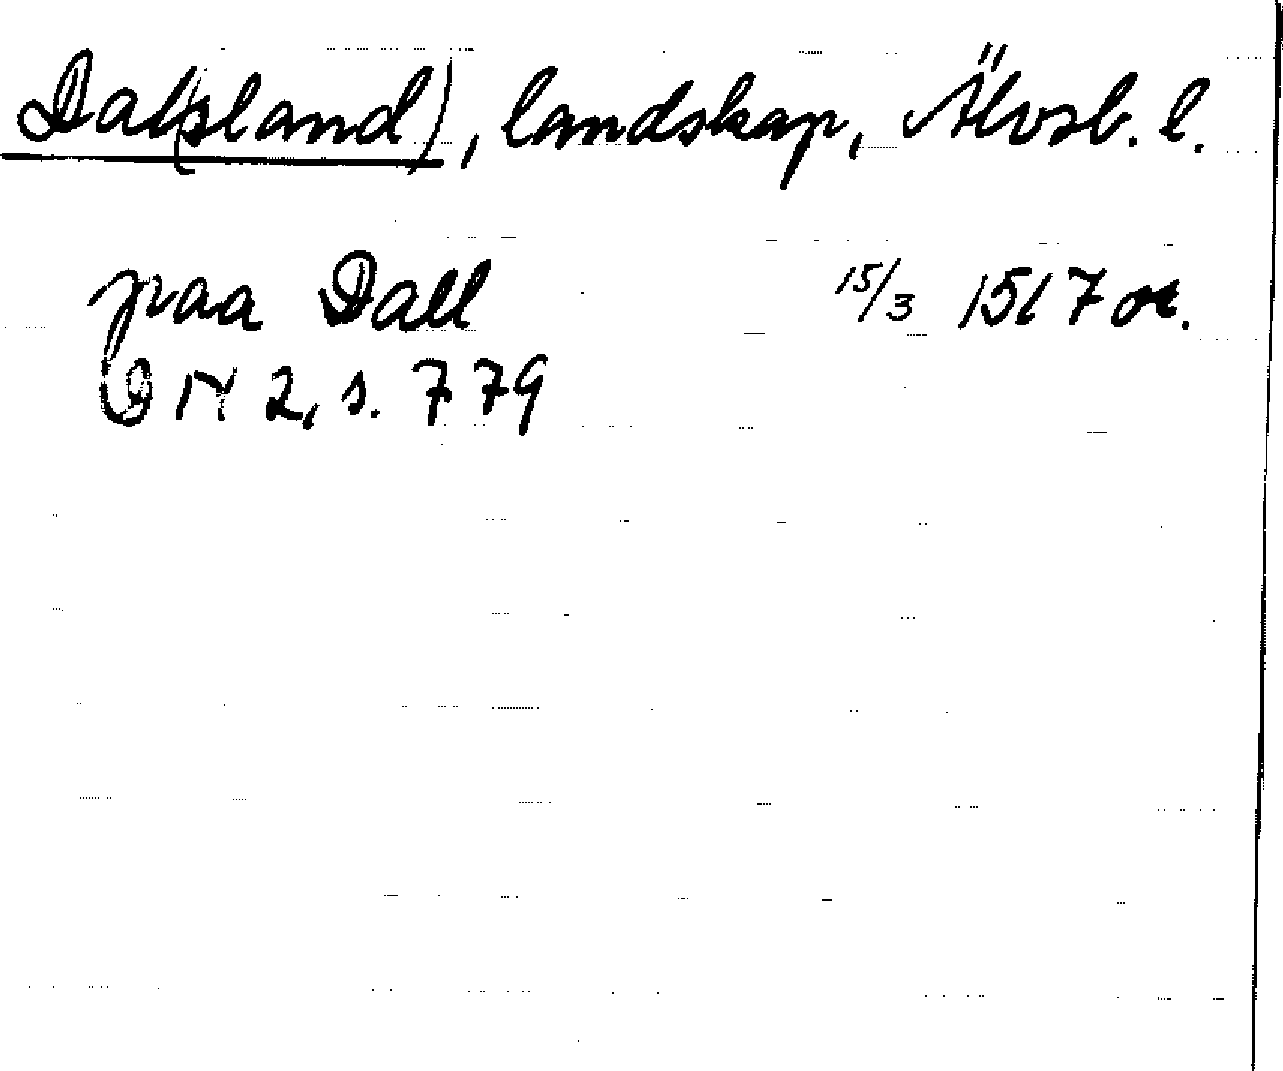 Dal(sland), landskap, Älvsb. l.
paa Dall 15/3 1517 or.
DN 2, s. 779